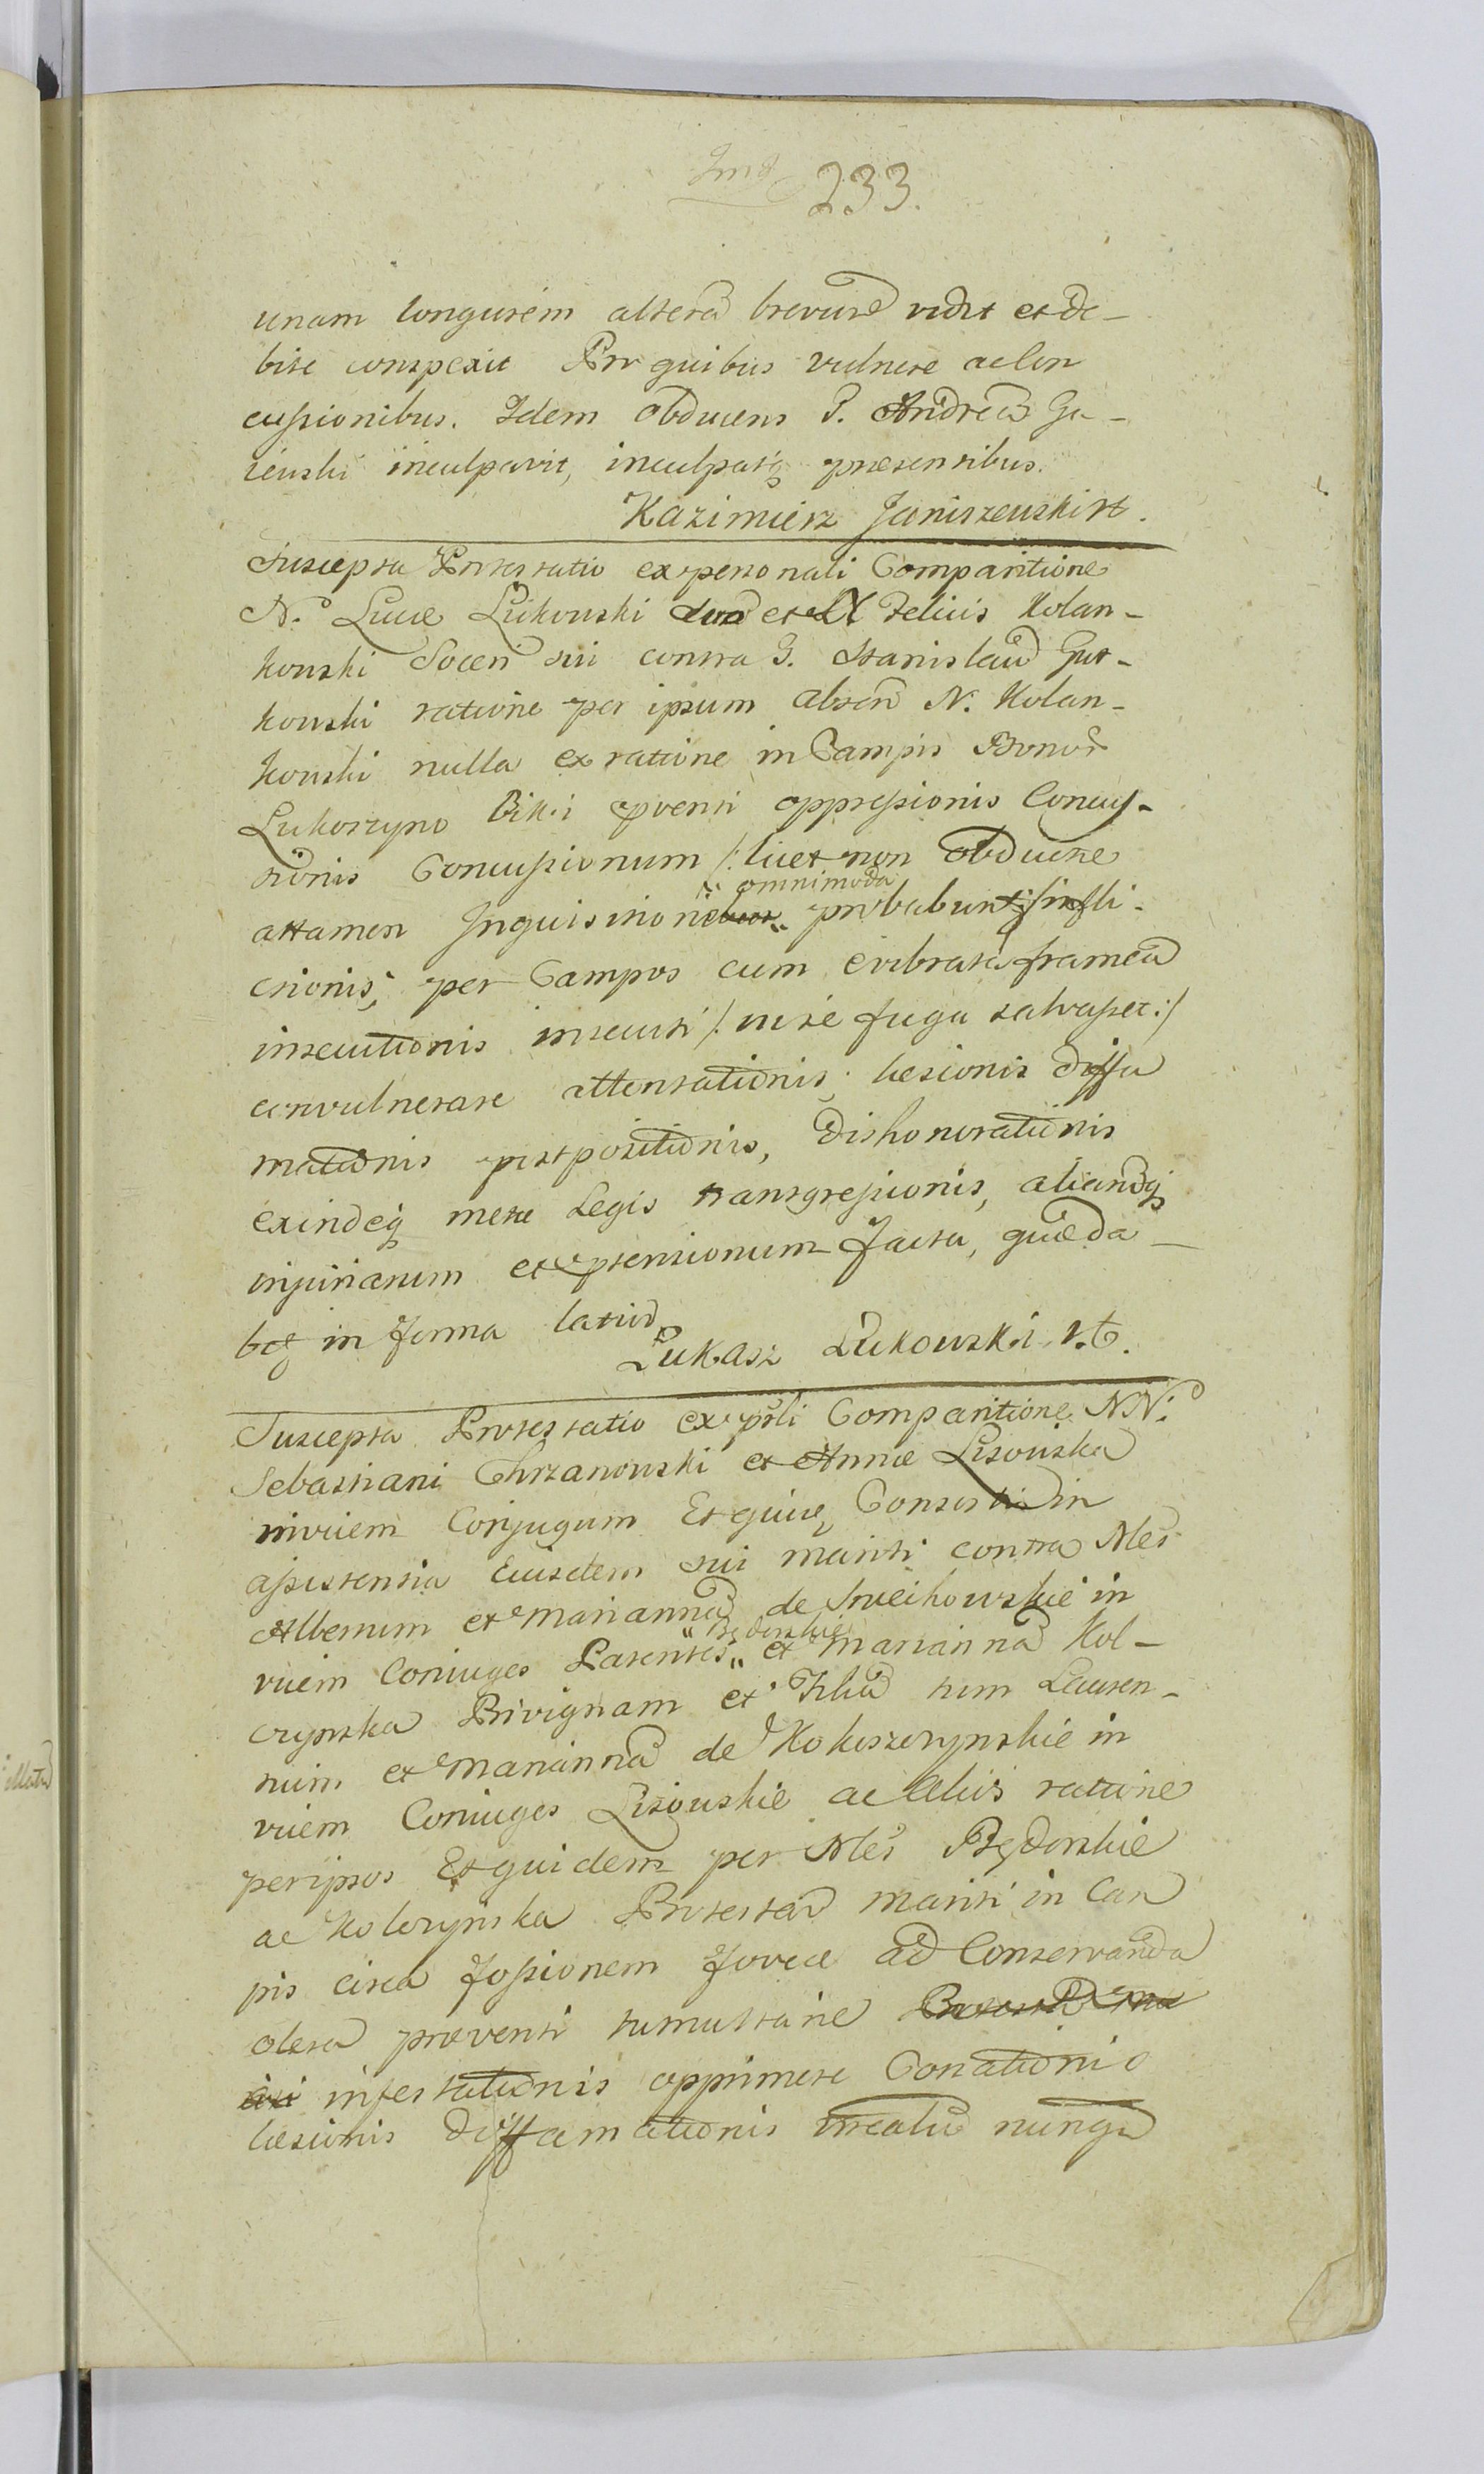 233.
unam longiorem alterã brevioré vidit et de-
bite conspexit Pro quibus vulnere ac con
cussionibus. Idem Obducens P. Andreã Ga-
ienski inculpavit, inculpatq̃ praesentibus.
Kazimierz Janiszewski
Suscepta Protestatio ex personali Comparitione
N. Lucæ Łukowski suo et Felicis Kolan-
kowski Soceri sui contra G. Stanislaũ Gut-
kowski ratione per ipsum absen N. Kolan-
kowski nulla ex ratione in Campis Bonor̃
Lukoszyno Biki pventi oppressionis Concus-
sionis Concussionum /: licet non obducere
attamen Inquisitione omnimoda probabunt :/ infli-
ctionis, per Campos cum evibrata frameã
insecutionis insecuti /: ni se fuga salvasset :/
convulnerare attentationis, læsionis diffa
mationis postpositionis, dishonorationis
exindeq̃ meræ Legis transgressionis, aliarũq̃
injuriarum et ptensionum Facta, quæ da-
bꝗ in forma latiori
Łukasz Łukowski
Suscepta Protestatio ex psli Comparitione NN.
Sebastiani Chrzanowski et Annæ Lisowska
invicem Conjugum Et quidem Consortis in
assistentia Eiusdem sui mariti contra Nles
Albertum et Mariannã de in
vicem Coniuges Parentes „Będorskie„ et Mariannã Kol-
czynska Privignam et Filiã tum Lauren-
tium et Mariannã de Kokoszczynskie in
vicem Coniuges Lisowskie ac Aliis ratione
per ipsos Et quidem per Nles Będorskie
ac Kolczynska Protestañ mariti in Cam
pis circa fossionem foveæ ad Conservanda
olera præventi tumultarie
infestationis opprimere Conationis
læsionis diffamationis